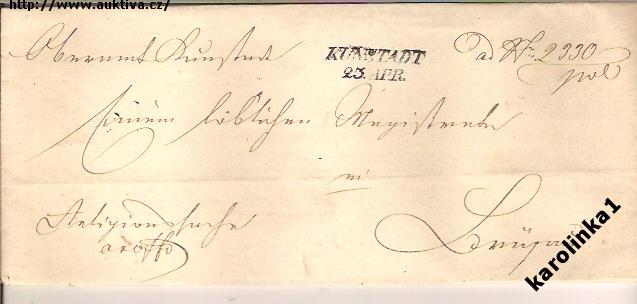 http://www.auktiva.cz/
Oberamt Kunstadt
KUNSTADT
23. APR.
ad Nr. 2330
pol
Einem löblichen Magistrate
in
Religionssache
ex offo
karolinka1